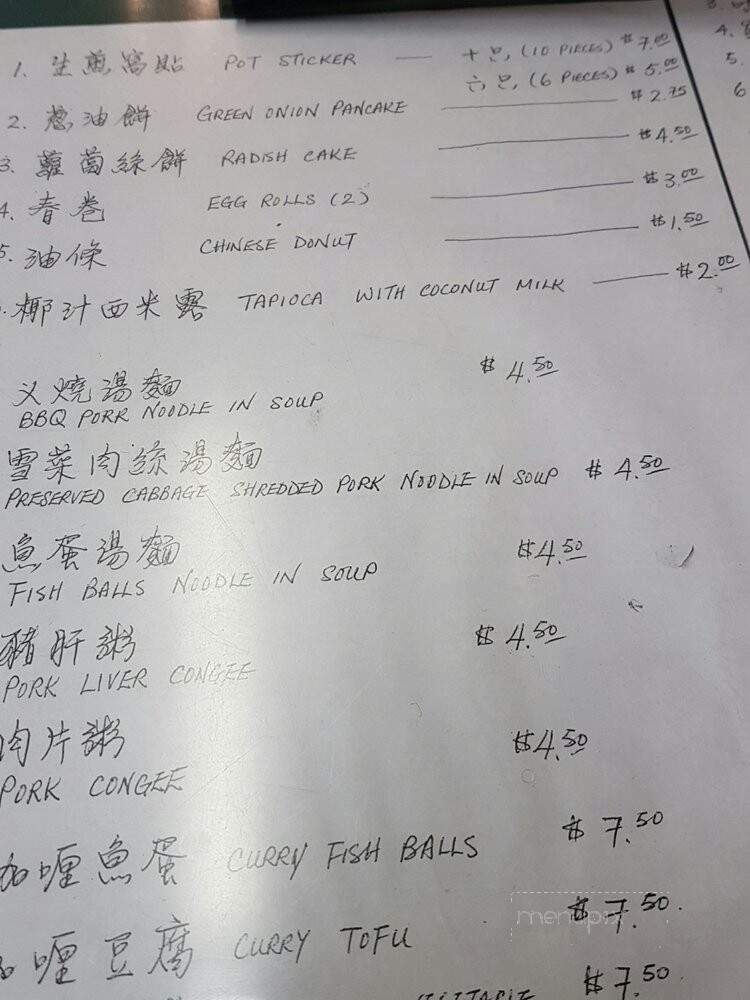 1. 生煎窩貼 POT STICKER 十只, (10 PIECES) $7.00
六只, (6 PIECES) $5.00
2. 葱油餅 GREEN ONION PANCAKE $2.75
3. 蘿蔔絲餅 RADISH CAKE $4.50
4. 春卷 EGG ROLLS (2) $3.00
5. 油條 CHINESE DONUT $1.50
椰汁西米露 TAPIOCA WITH COCONUT MILK $2.00
叉燒湯麵 $4.50
BBQ PORK NOODLE IN SOUP
雪菜肉絲湯麵
PRESERVED CABBAGE SHREDDED PORK NOODLE IN SOUP $4.50
魚蛋湯麵 $4.50
FISH BALLS NOODLE IN SOUP
豬肝粥 $4.50
PORK LIVER CONGEE
肉片粥 $4.50
PORK CONGEE
咖喱魚蛋 CURRY FISH BALLS $7.50
喱豆腐 CURRY TOFU $7.50.
$7.50
3.
4.
5.
6
menupix